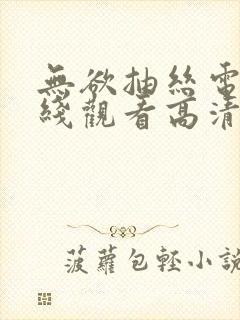 無欲抽絲電
綫觀看高清
菠蘿包輕小説